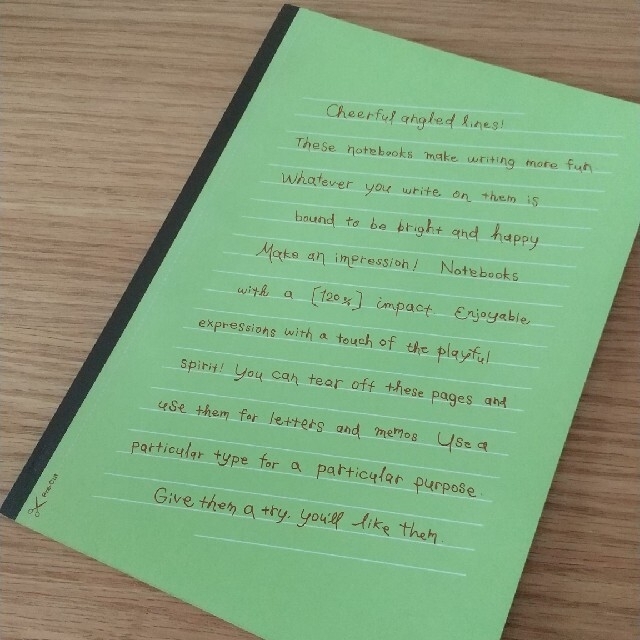 Cheerful angled lines!
These notebooks make writing more fun
Whatever you write on them is
bound to be bright and happy
Make an impression! Notebooks
with a [120%] impact. Enjoyable
expressions with a touch of the playful
spirit! You can tear off these pages and
use them for letters and memos. Use a
particular type for a particular purpose.
Give them a try. You'll like them